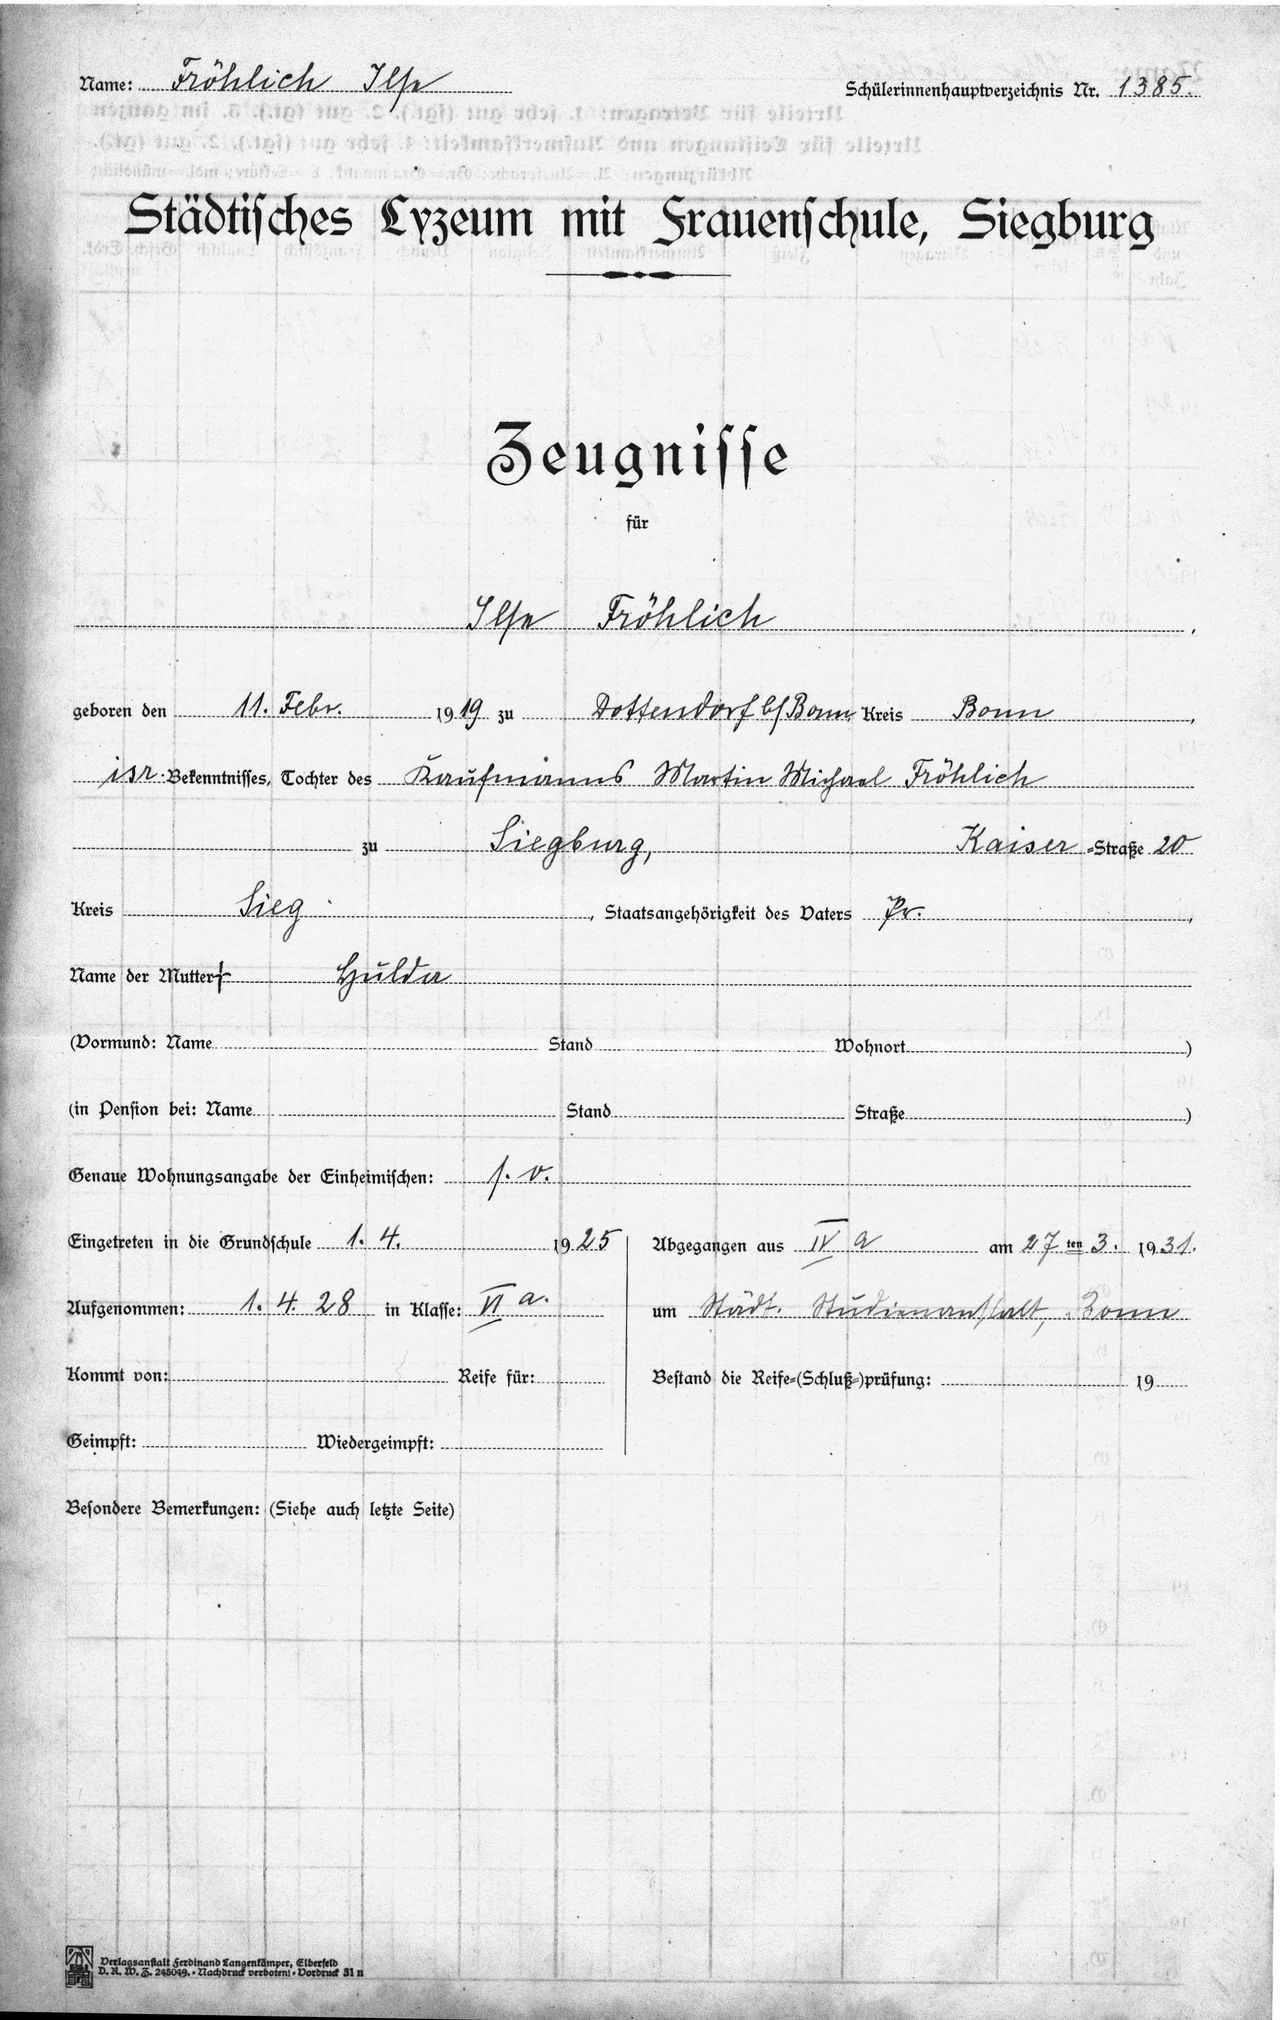 Name: Fröhlich Ilse
Schülerinnenhauptverzeichnis Nr. 1385.
Städtisches Lyzeum mit Frauenschule, Siegburg
Zeugnisse
für
Ilse Fröhlich,
geboren den 11. Febr. 1919 zu Dottendorf b/Bonn Kreis Bonn,
isr. Bekenntnisses, Tochter des Kaufmanns Martin Michael Fröhlich
zu Siegburg, Kaiser-Straße 20
Kreis Sieg, Staatsangehörigkeit des Vaters Pr.,
Name der Mutter † Hulda
(Vormund: Name Stand Wohnort )
(in Pension bei: Name Stand Straße )
Genaue Wohnungsangabe der Einheimischen: s. o.
Eingetreten in die Grundschule 1. 4. 1925
Aufgenommen: 1. 4. 28 in Klasse: VI a.
Kommt von: Reife für:
Geimpft: Wiedergeimpft:
Abgegangen aus IV a am 27ten 3. 1931.
um Städt. Studienanstalt, Bonn
Bestand die Reife-(Schluß-)prüfung: 19
Besondere Bemerkungen: (Siehe auch letzte Seite)
Verlagsanstalt Ferdinand Langenkämper, Elberfeld
D. R. W. Z. 245049. - Nachdruck verboten! - Vordruck 31 n